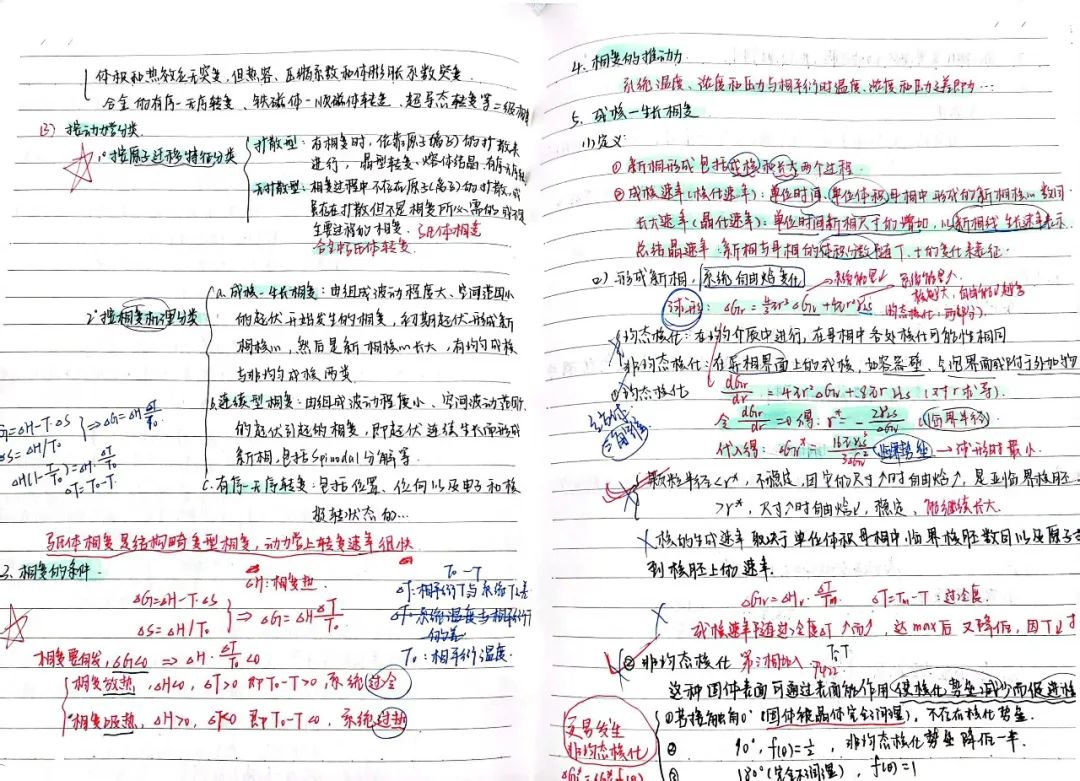 体积和热效应无突变,但热容、压缩系数和体膨胀系数突变.
合金的有序-无序转变、铁磁体-顺磁体转变、超导态转变等二级相
(3) 按动力学分类
1° 按原子迁移特征分类
扩散型:有相变时,依靠原子(离子)的扩散来
进行,晶型转变、熔体结晶、有序无序
无扩散型:相变过程中不存在原子(离子)的扩散,或
虽存在扩散但不是相变所必需的或不是
主要过程的相变.马氏体相变
2° 按相变机理分类
a. 成核-生长相变:由组成波动程度大、空间范围小
的起伏开始发生的相变,初期起伏形成新
相核心,然后是新相核心长大,有均匀成核
与非均匀成核两类.
b. 连续型相变:由组成波动程度小、空间波动范围
的起伏引起的相变,即起伏连续生长而形成
新相,包括Spinodal分解等.
c. 有序-无序转变:包括位置、位向以及电子和核
旋转状态的...
G=ΔH-T·ΔS
ΔS=ΔH/T₀
⇒ΔG=ΔH ΔT/T₀
ΔH(1-T/T₀)=ΔH·ΔT/T₀
ΔT=T₀-T
马氏体相变是结构畸变型相变,动力学上转变速率很快.
3、相变的条件
ΔH:相变热
T₀-T
ΔT:相平衡T与系统T之差
ΔG=ΔH-T·ΔS
ΔS=ΔH/T₀
⇒ΔG=ΔH ΔT/T₀
ΔT:系统温度与相平衡
的差
T₀:相平衡温度.
相变要自发,ΔG<0 ⇒ ΔH·ΔT/T₀<0
相变放热,ΔH<0,ΔT>0 即T₀-T>0,系统过冷
相变吸热,ΔH>0,ΔT<0 即T₀-T<0,系统过热
4. 相变的推动力
系统温度、浓度和压力与相平衡时温度、浓度和压力之差即为...
5. 成核-生长相变
(1)定义
① 新相形成包括成核和长大两个过程.
② 成核速率(核化速率):单位时间、单位体积母相中形成的新相核心数目
长大速率(晶化速率):单位时间新相尺寸的增加,以新相线生长速率表示
总结晶速率:新相与母相的体积分数随T、t的变化来表征.
(2) 形成新相,系统自由焓变化
球形:ΔGr=4/3πr³ΔGv+4πr²γLS
均态核化:在均匀介质中进行,在母相中各处核化可能性相同
非均态核化:在异相界面上的成核,如容器壁、气泡界面或附于外加物
①均态核化
dGr/dr=4πr²ΔGv+8πrγLS (对r求导)
令 dGr/dr=0得:r*=-2γLS/ΔGv (临界半径)
代入得:ΔGr*=16πγLS³/3ΔGv² 临界势垒→球形时最小.
颗粒半径<r*,不稳定,因它的尺寸↑时自由焓↑,是亚临界核胚.
>r*,尺寸↑时自由焓↓,稳定、能继续长大.
核的生成速率取决于单位体积母相中临界核胚数目以及原子
到核胚上的速率.
ΔGv=ΔHv·ΔT/Tm ΔT=Tm-T:过冷度
成核速率随过冷度ΔT↑而↑,达max后又降低,因T↓
② 非均态核化
这种固体表面可通过表面能作用使核化势垒减少而促进
①若接触角0°(固体被晶体完全润湿),不存在核化势垒.
② 90°,f(θ)=1/2,非均态核化势垒降低一半.
③ 180°(完全不润湿),f(θ)=1
更易发生
非均态核化